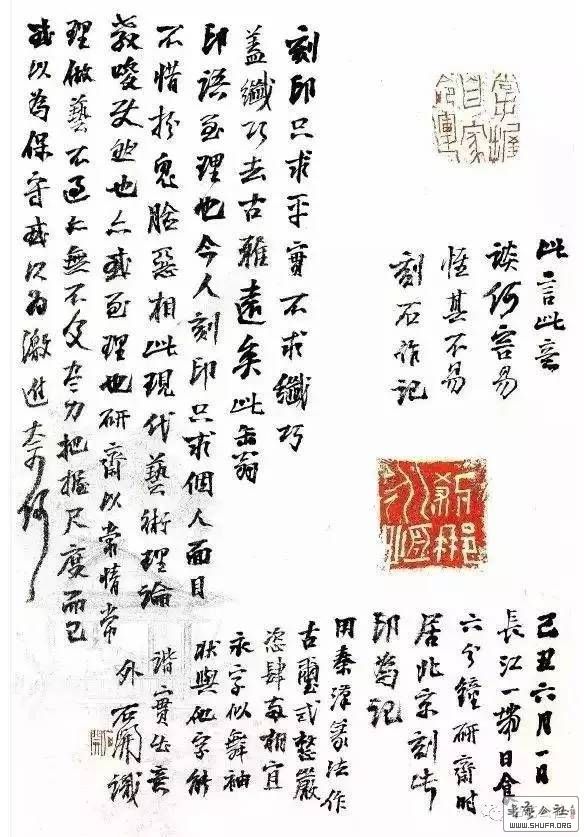 常握
自家
命運
此言此意
談何容易
惟其不易
刻石作記
刻印只求平實不求纖巧
蓋纖巧去古雅遠矣此缶翁
印語至理也今人刻印只求個人面目
不惜扮鬼臉惡相此現代藝術理論
教唆使然也亦或至理也研齋以常情常
理做藝不過亦無不及盡力把握尺度而已
或以為保守或以為激進奈何
己丑六月一日
長江一帶日食
六分鐘研齋時
居北京刻此
印為記
用秦漢篆法作
古璽式整嚴
恣肆兩相宜
永字似舞袖
狀與他字能
諧實出意
外 石開識
WWW.SHUFA.ORG